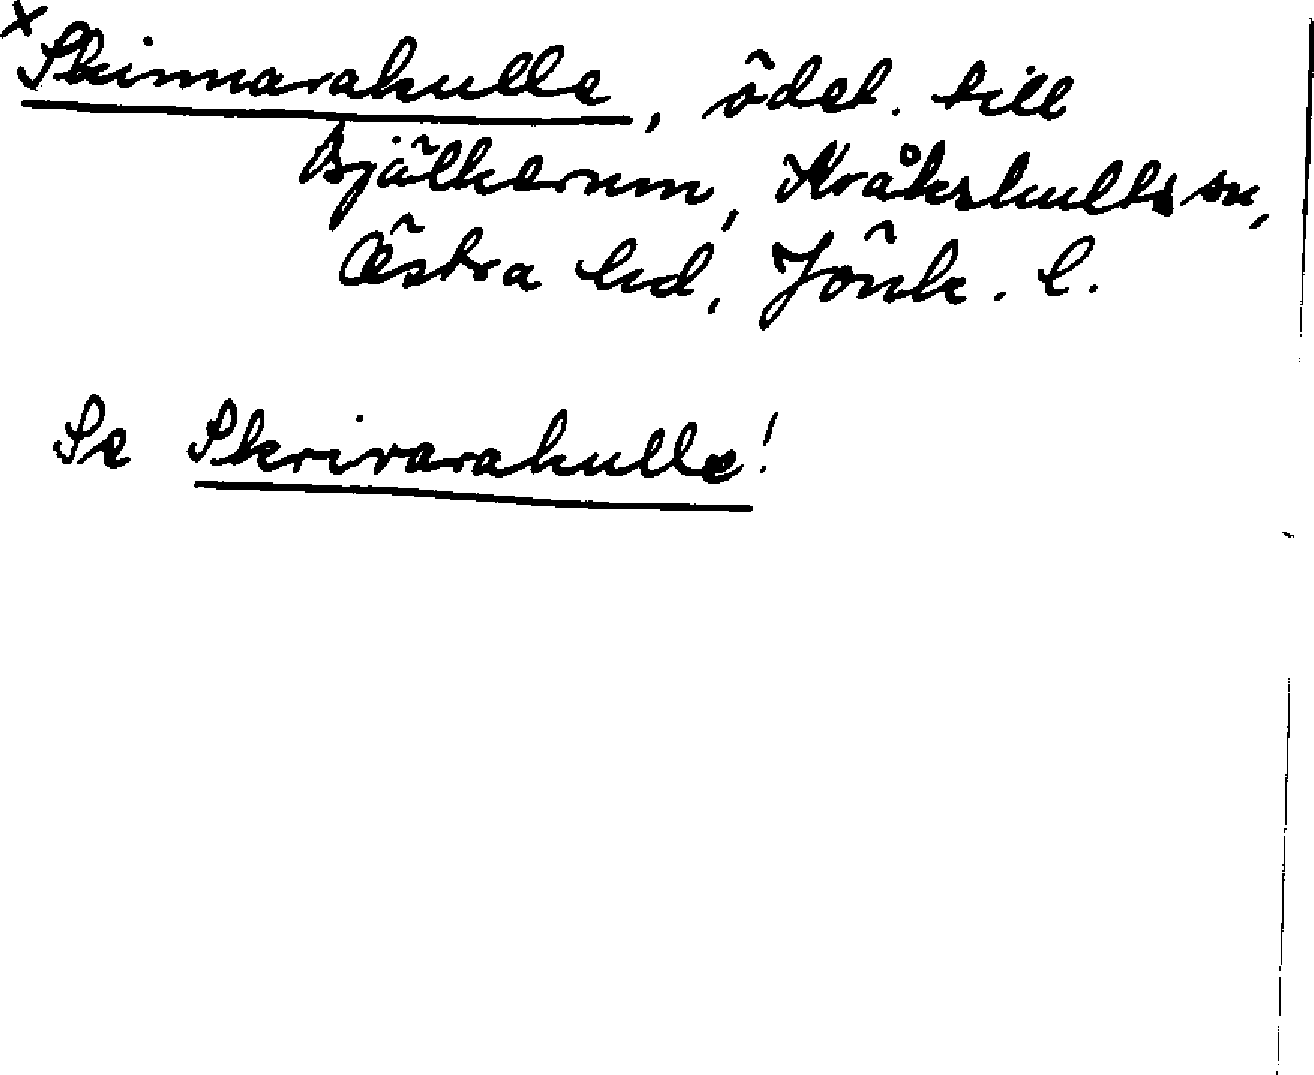 × Skinnarakulle, ödel. till
Bjälkerum, Kråkshults sn,
Östra hd, Jönk. l.
Se Skrivarakulle!